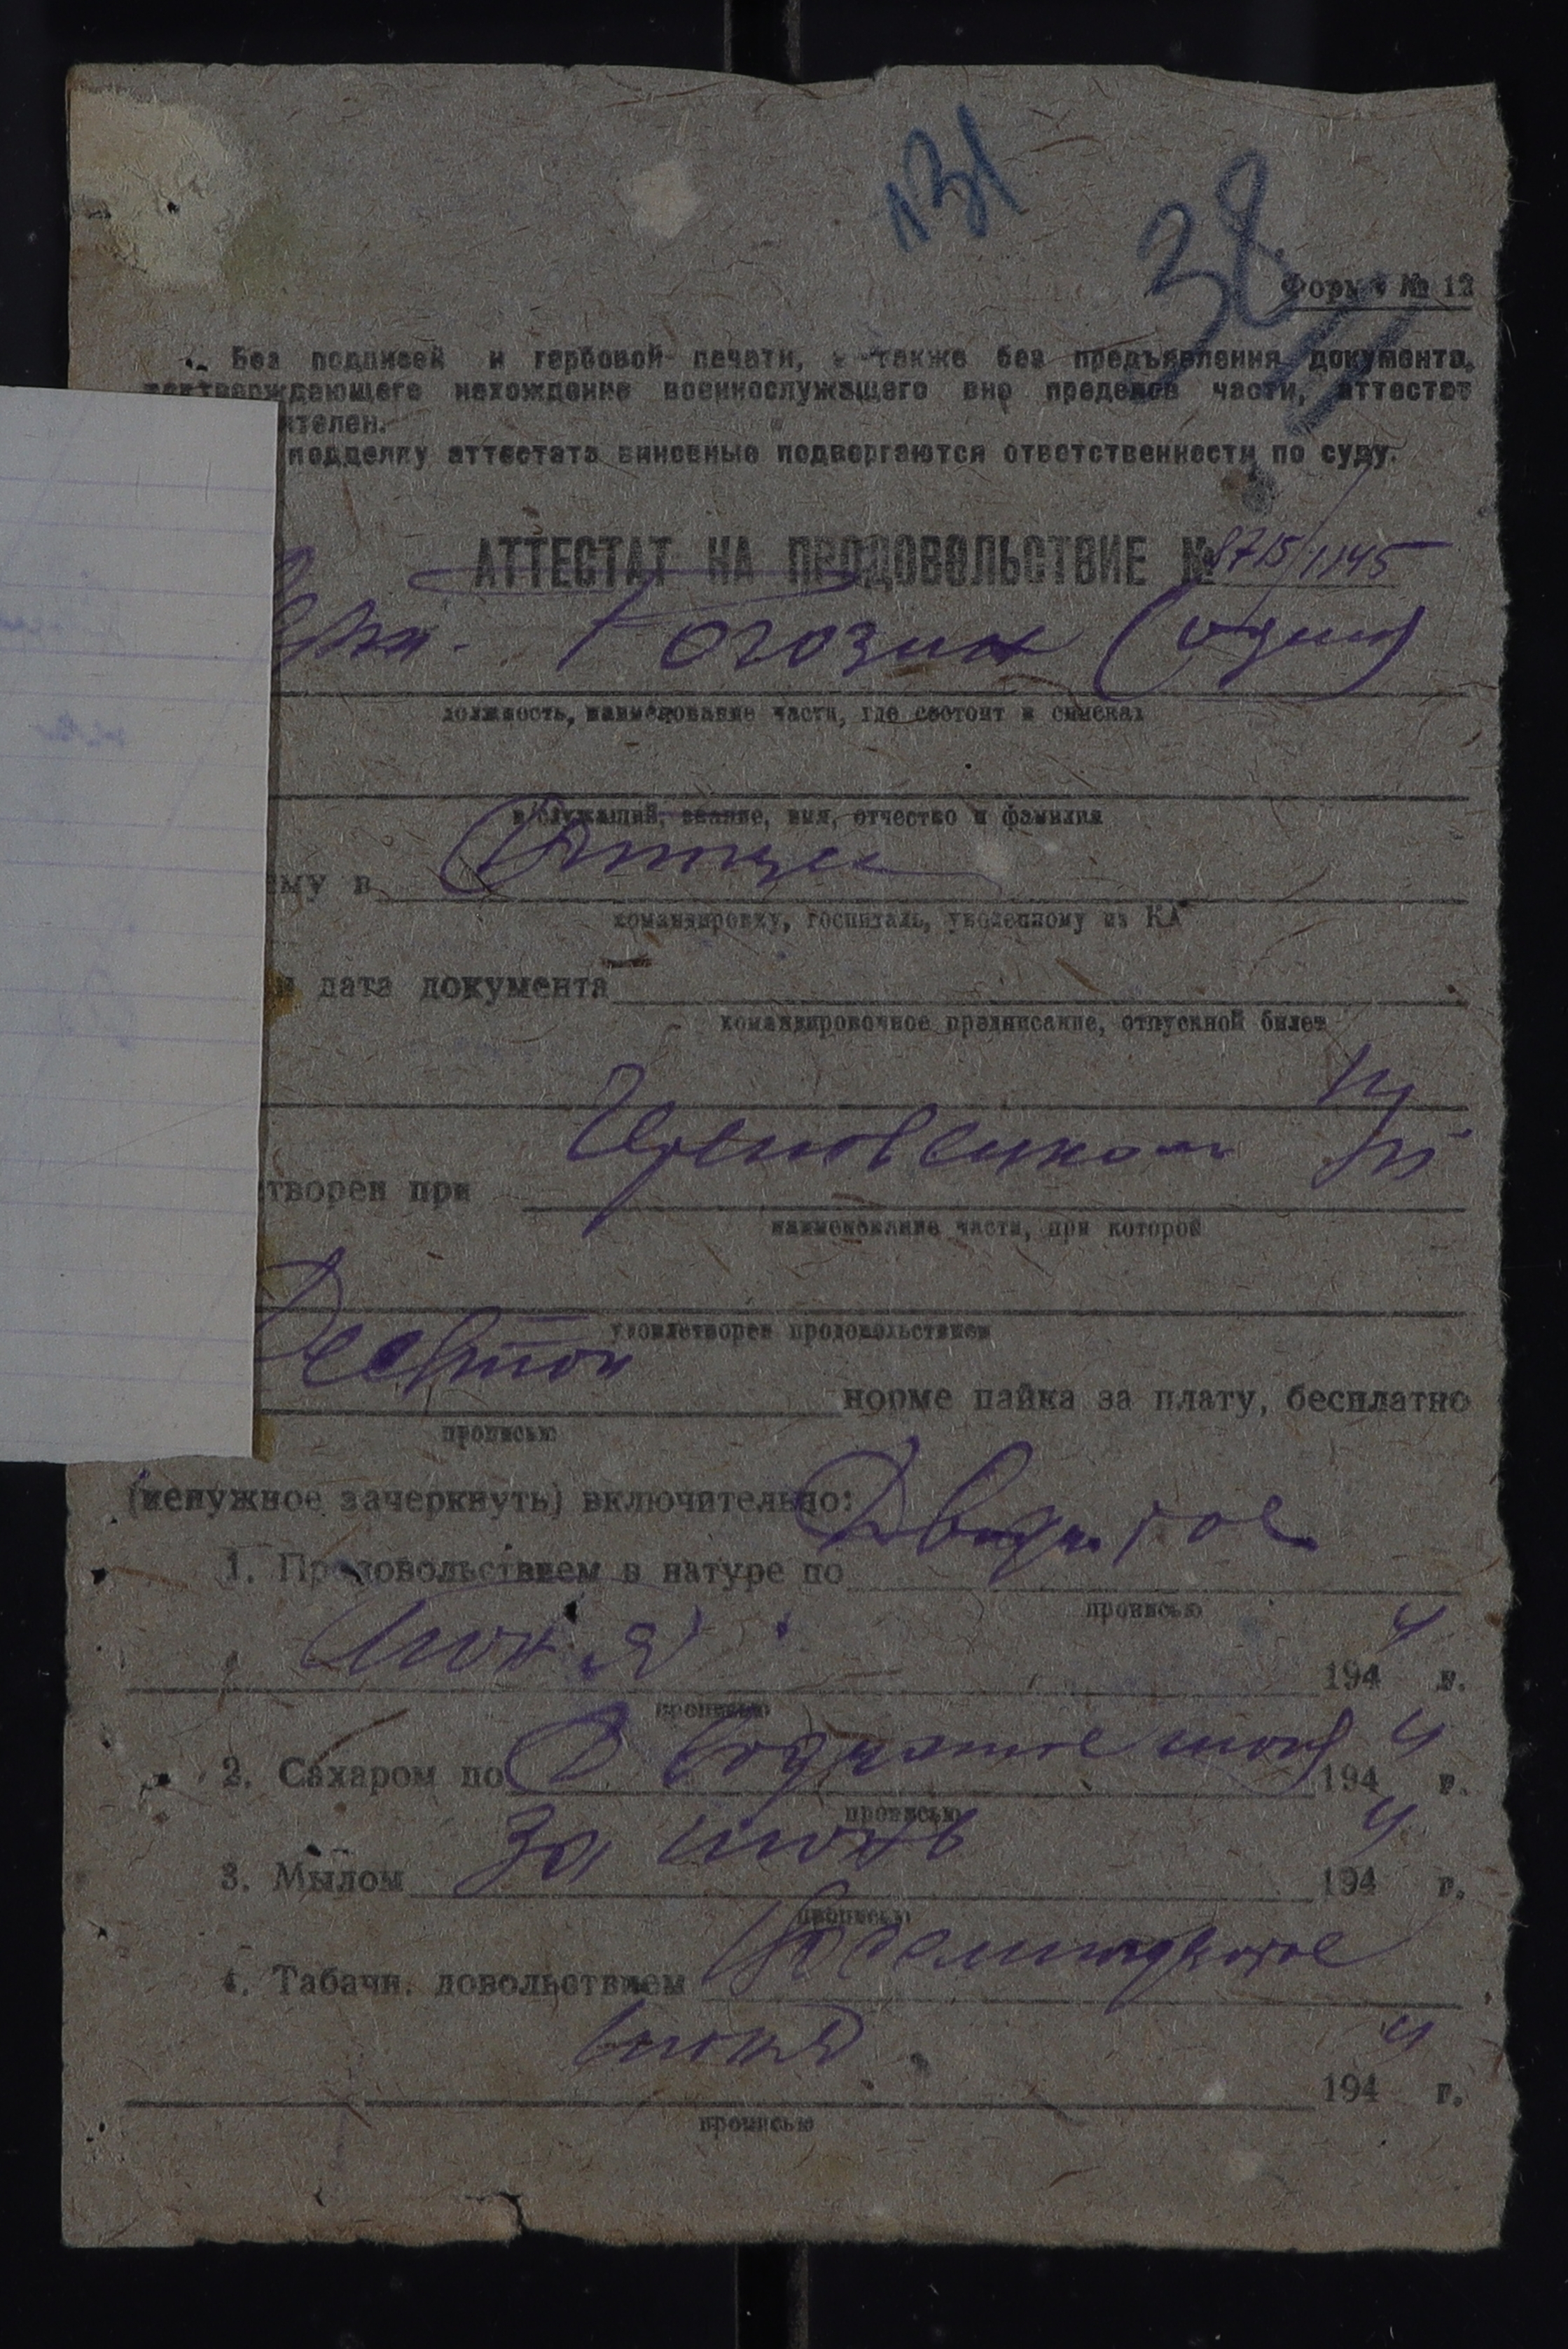 131
38
Форма № 12
Без подписей и гербовой печати, а также без предъявления документа,
подтверждающего нахождение военнослужащего вне пределов части, аттестат
ителен.
подделку аттестата виновные подвергаются ответственности по суду.
АТТЕСТАТ НА ПРОДОВОЛЬСТВИЕ № 8715/1145
Рогозин (один)
должность, наименование части, где состоит в списках
в служащий, звание, имя, отчество и фамилия
ему в
командировку, госпиталь, уволенному из КА
и дата документа
командировочное предписание, отпускной билет
творен при
наименование части, при которой
удовлетворен продовольствием
норме пайка за плату, бесплатно
прописью
(ненужное зачеркнуть) включительно:
1. Продовольствием в натуре по Двадцатое
прописью
июня 1944 г.
прописью
2. Сахаром по Двадцатое июня 1944 г.
прописью
3. Мылом За июнь 1944 г.
прописью
4. Табачн. довольствием
июня 1944 г.
прописью